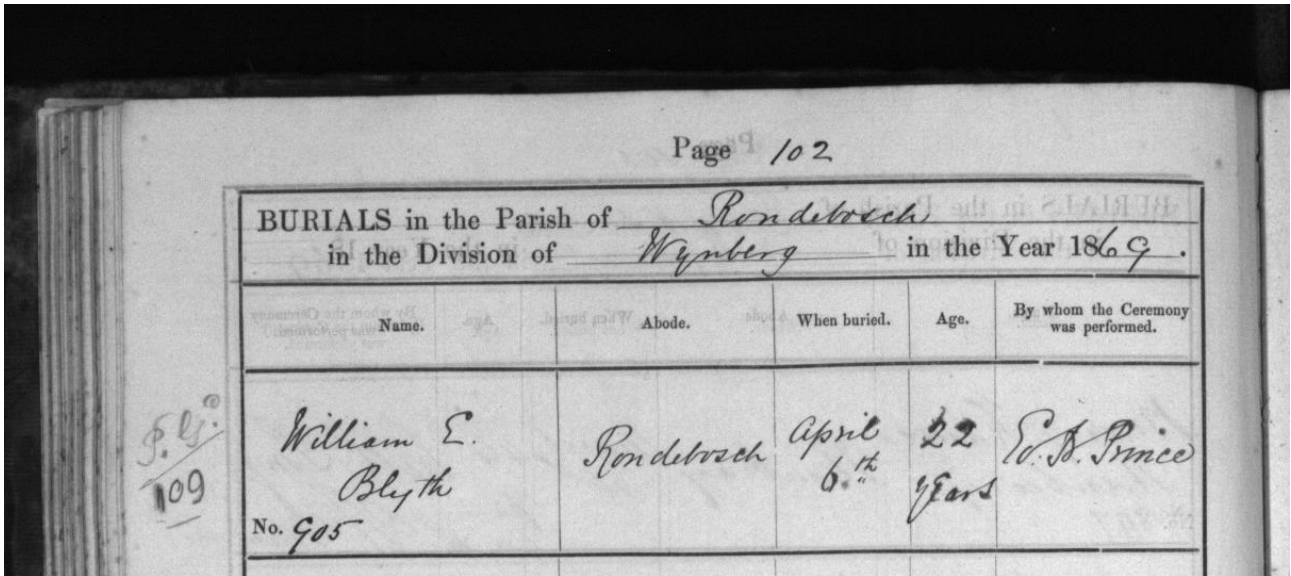 Page 102
BURIALS in the Parish of Rondebosch
in the Division of Wynberg in the Year 1869.
Name. Abode. When buried. Age. By whom the Ceremony was performed.
William E. Rondebosch April 22
Blyth 6.th years
No. 905
109
Prince